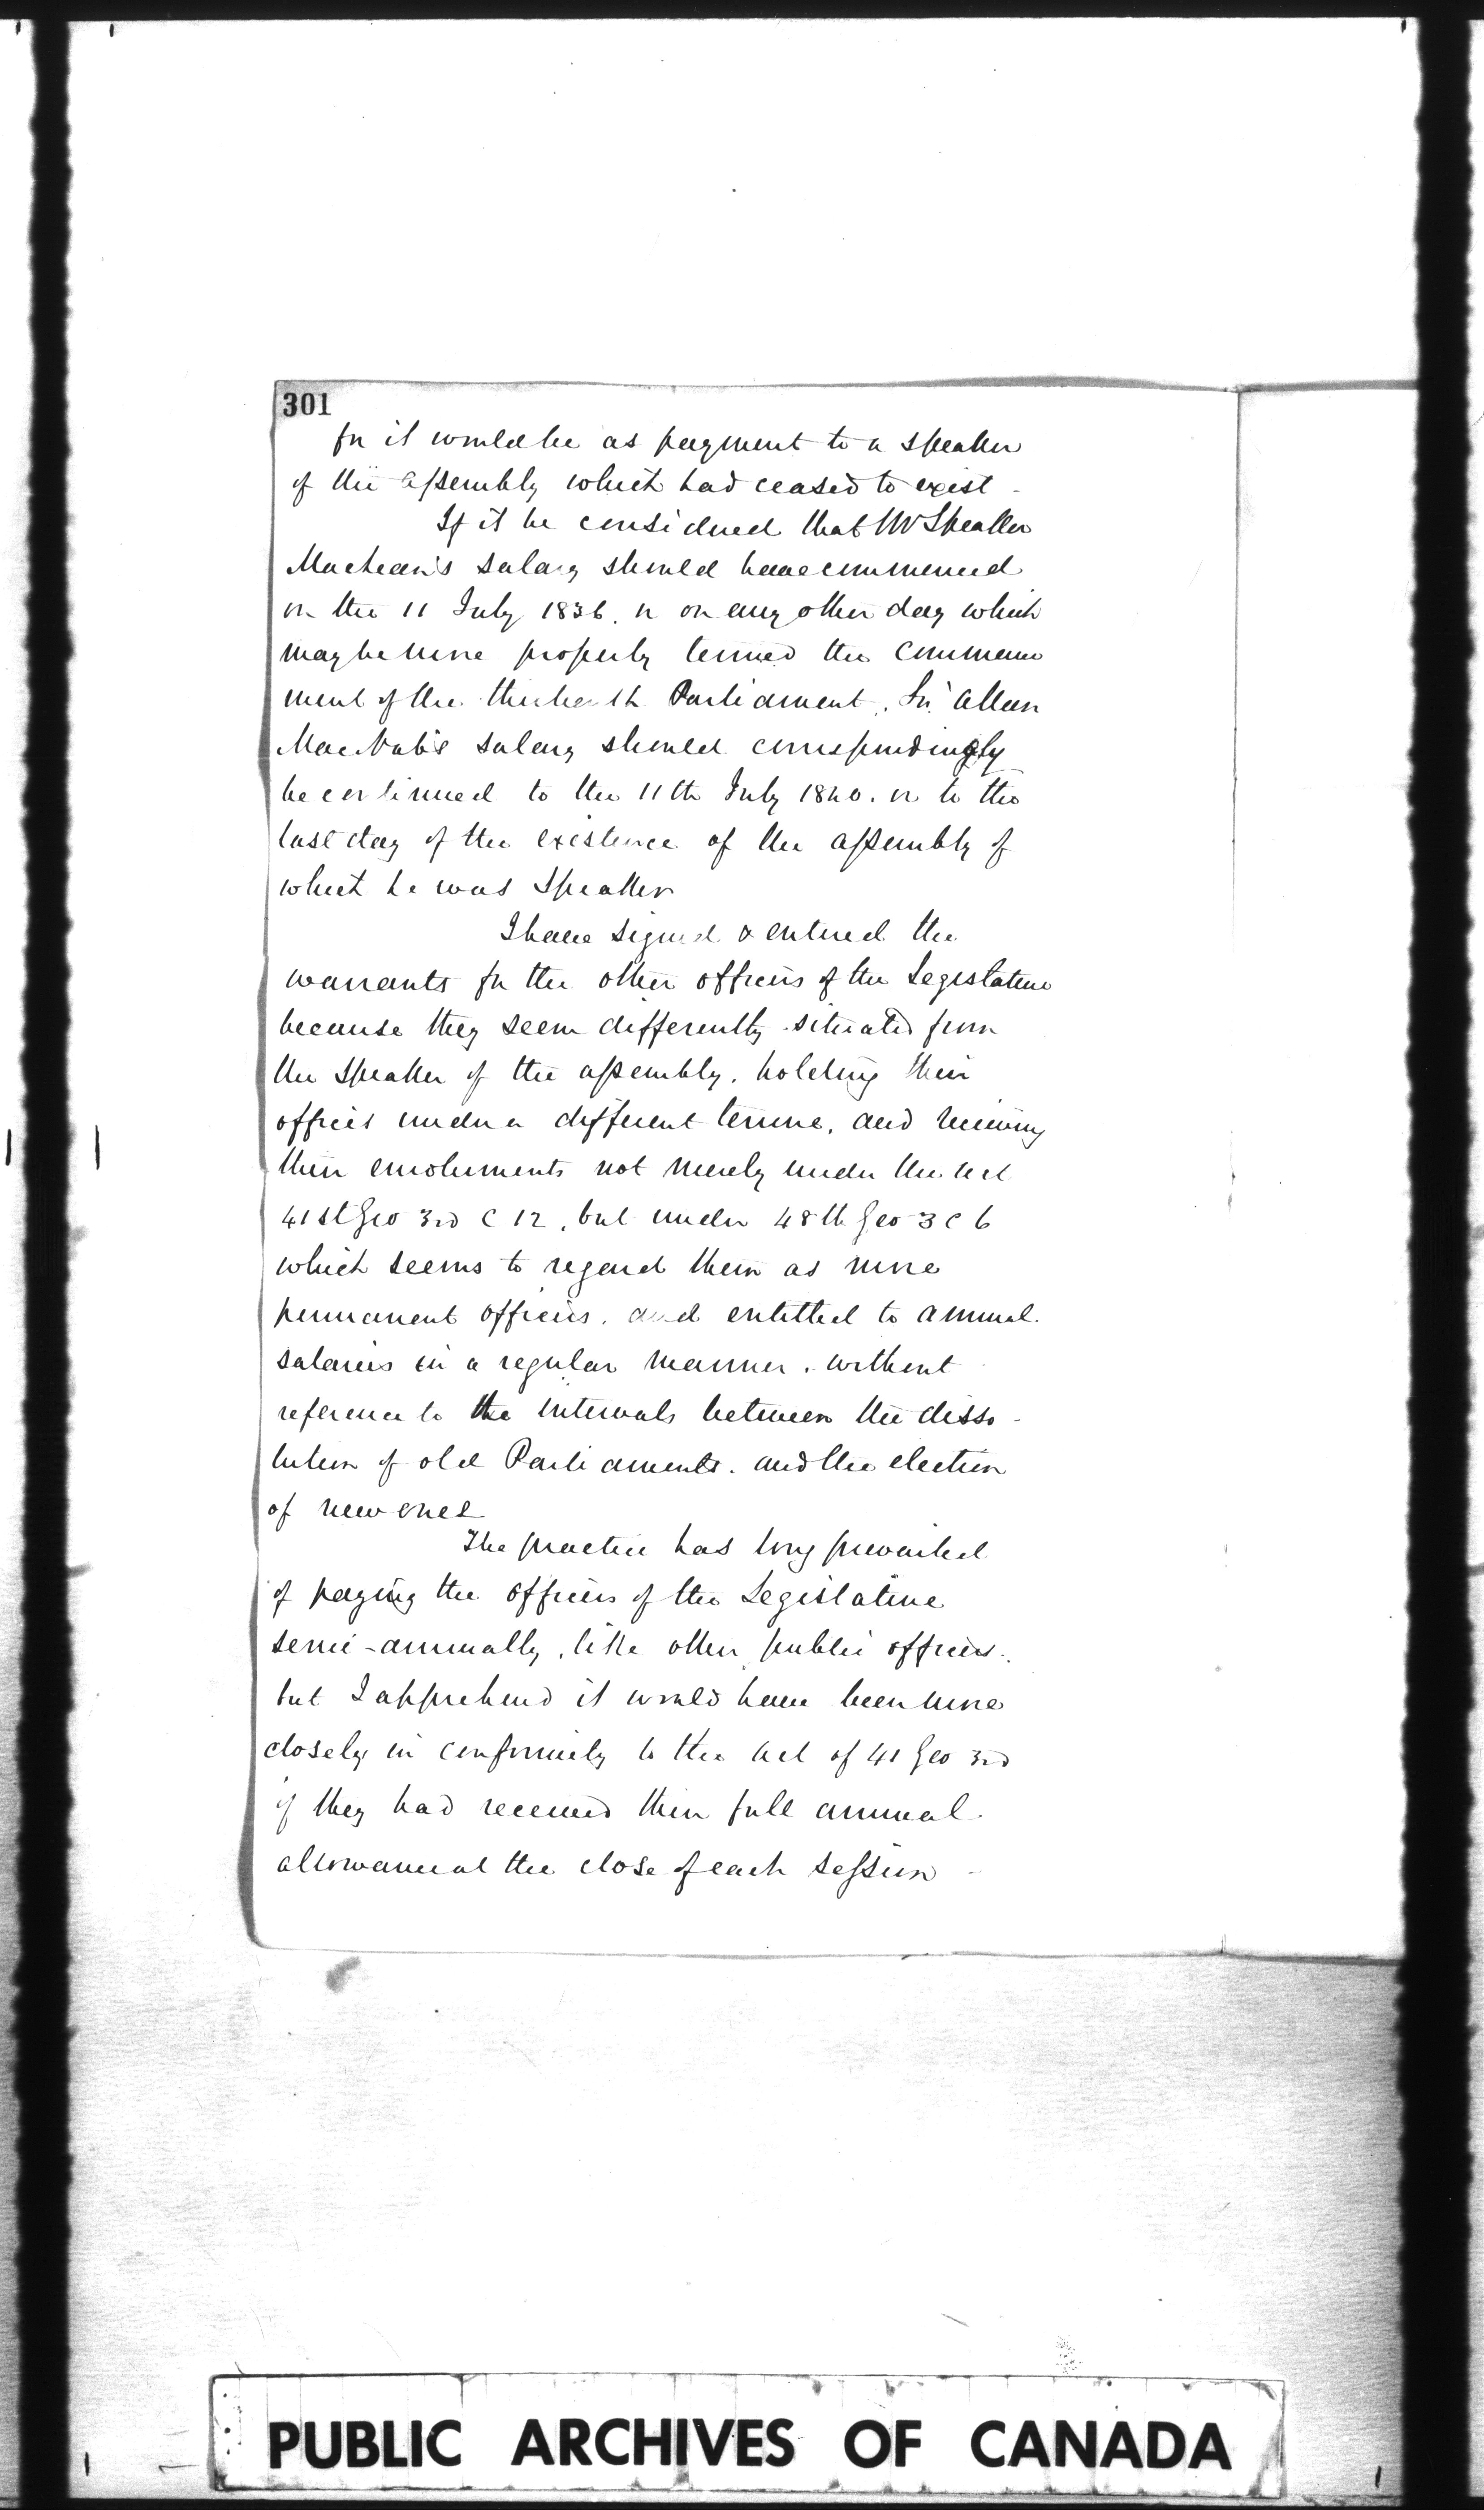 301
for it would be as payment to a speaker
of the assembly which had ceased to exist -
If it be considered that Mr Speaker
MacLean's salary should have commenced
on the 11 July 1836. or on any other day which
may be more properly termed the commence
ment of the thirteenth Parliament. Sir Allan
MacNab's salary should correspondingly
be continued to the 11th July 1840. or to the
last day of the existence of the assembly of
which he was Speaker
I have signed & entered the
warrants for the other officers of the Legislature
because they seem differently situated from
the Speaker of the assembly. holding their
offices under a different tenure, and receiving
their emoluments not merely under the act
41st Geo 3rd C 12, but under 48th Geo 3 C 6
which seems to regard them as more
permanent officers, and entitled to annual
salaries in a regular manner. without
reference to the intervals between the disso-
lution of old Parliaments. and the election
of new ones
The practice has long prevailed
of paying the officers of the Legislature
semi-annually, like other public officers.
but I apprehend it would have been more
closely in conformity to the act of 41 Geo 3rd
if they had received their full annual
allowance at the close of each session -
PUBLIC ARCHIVES OF CANADA